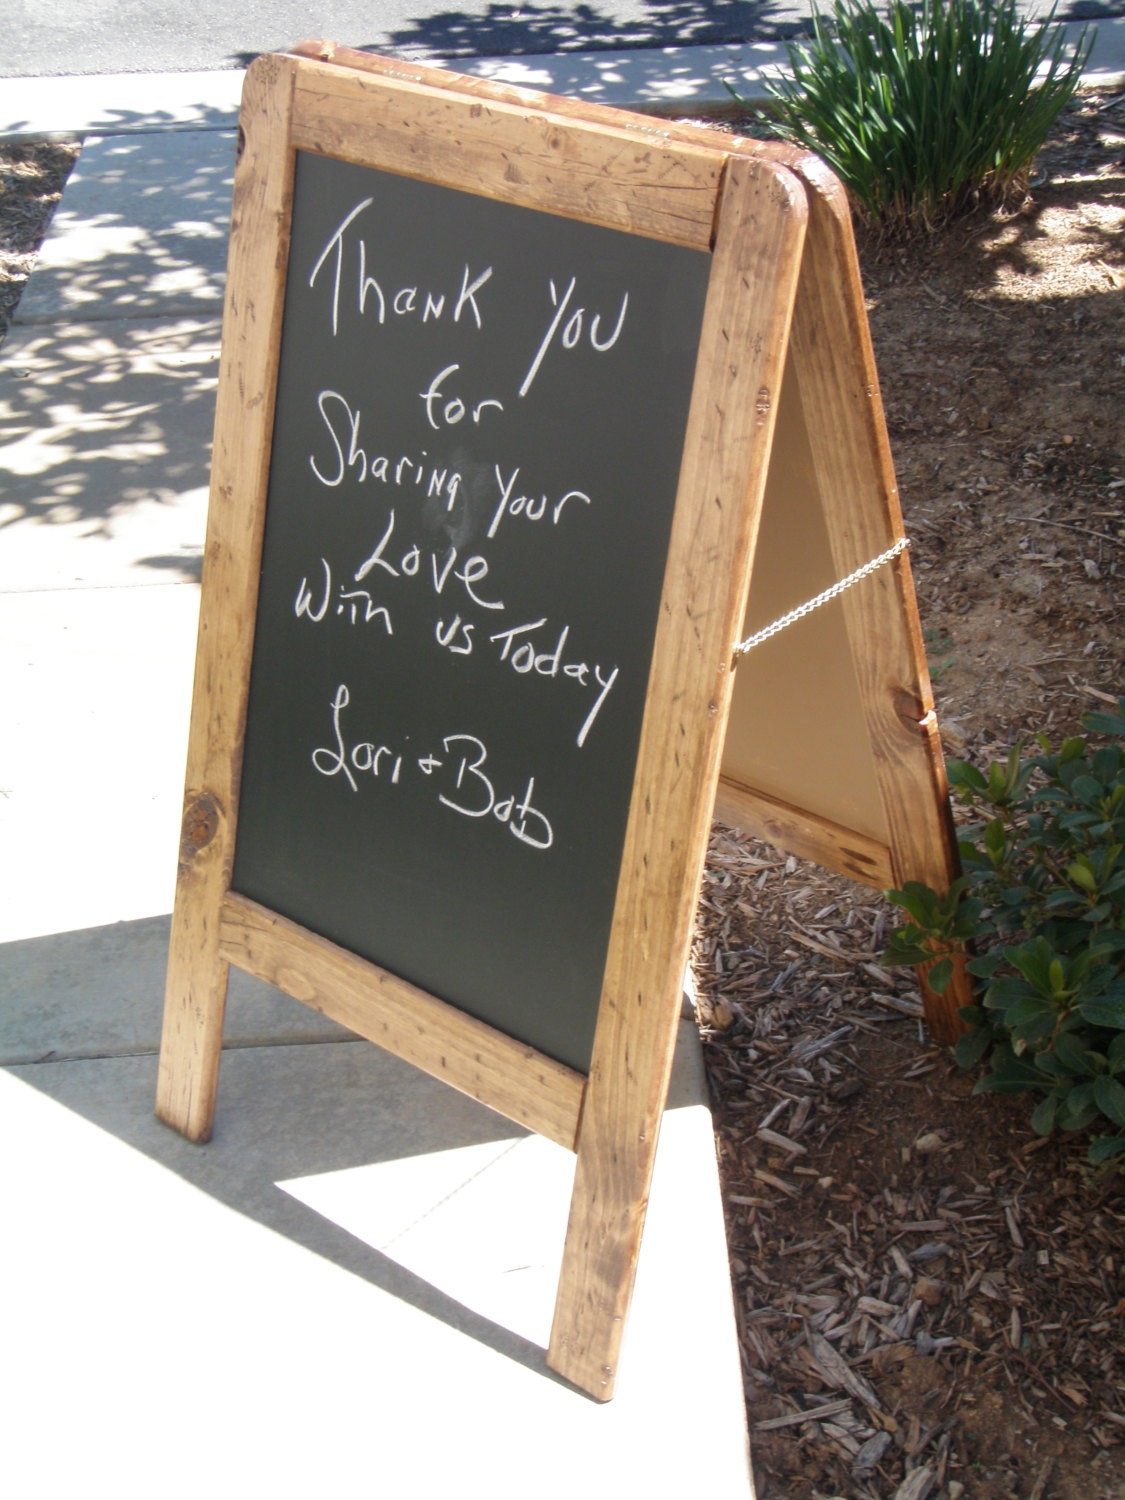 Thank You
for
Sharing Your
Love
With us Today
Lori + Bob